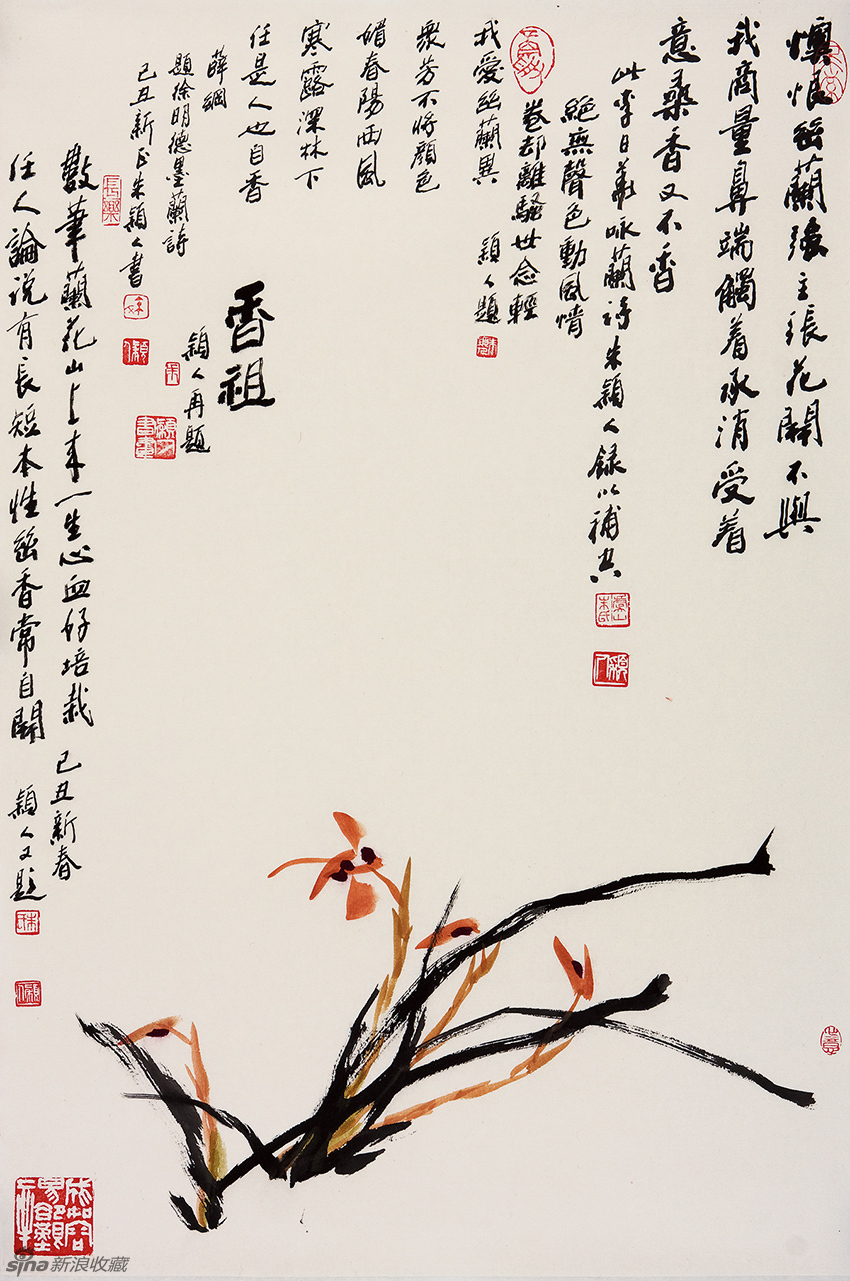 懊恨幽蘭強主張花開不與
我商量鼻端觸着承消受着
意尋香又不香
此李日華咏蘭詩朱穎人録以補空
絕無聲色動風情
卷却離騷世念輕
穎人題
我愛幽蘭異
眾芳不將顏色
媚春陽西風
寒露深林下
任是人也自香
薛綱
題徐明德墨蘭詩
己丑新正朱穎人書
香祖
穎人再題
數筆蘭花山上來一生心血好培栽
己丑新春
任人論說有長短本性幽香常自開
穎人又題
sina新浪收藏